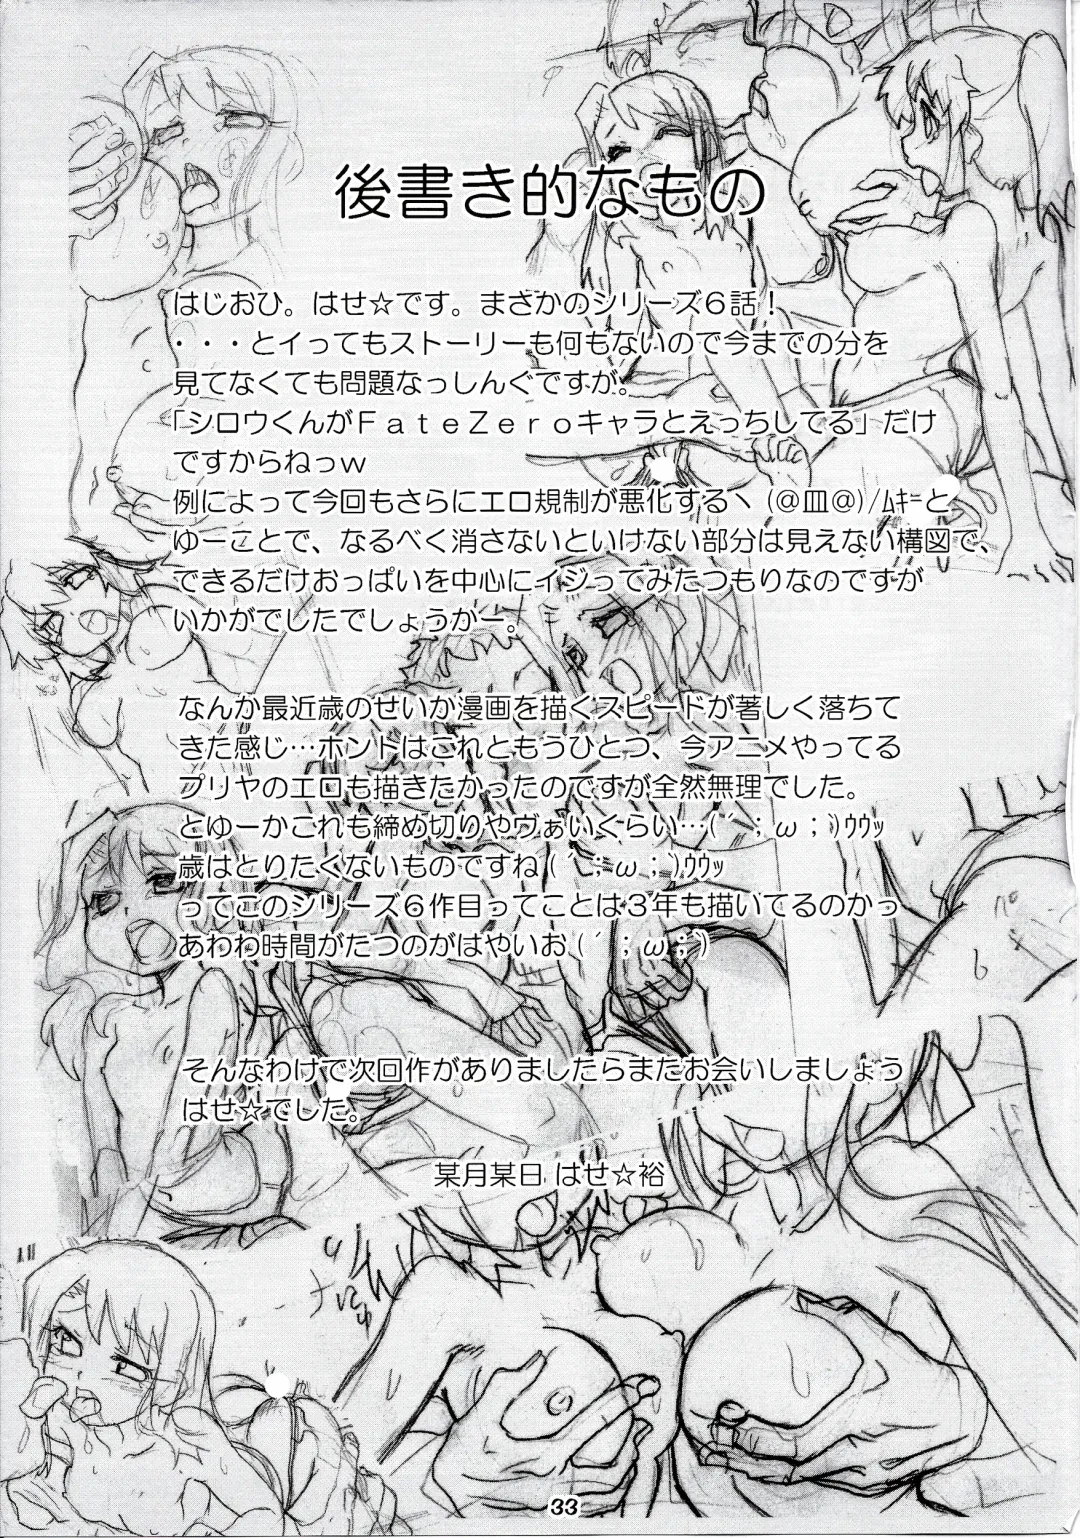 後書き的なもの
はじおひ。はせ☆です。まさかのシリーズ6話！
・・・とイってもストーリーも何もないので今までの分を
見てなくても問題なっしんぐですが。
「シロウくんがＦａｔｅＺｅｒｏキャラとえっちしてる」だけ
ですからねっｗ
例によって今回もさらにエロ規制が悪化するヽ(＠皿＠)/ﾑｷｰと
ゆーことで、なるべく消さないといけない部分は見えない構図で、
できるだけおっぱいを中心にイジってみたつもりなのですが
いかがでしたでしょうかー。
なんか最近歳のせいか漫画を描くスピードが著しく落ちて
きた感じ…ホントはこれともうひとつ、今アニメやってる
プリヤのエロも描きたかったのですが全然無理でした。
とゆーかこれも締め切りやヴぁいくらい…(´；ω；`)ｳｳｯ
歳はとりたくないものですね(´；ω；`)ｳｳｯ
ってこのシリーズ6作目ってことは3年も描いてるのかっ
あわわ時間がたつのがはやいお(´；ω；`)
そんなわけで次回作がありましたらまたお会いしましょう
はせ☆でした。
某月某日 はせ☆裕
33